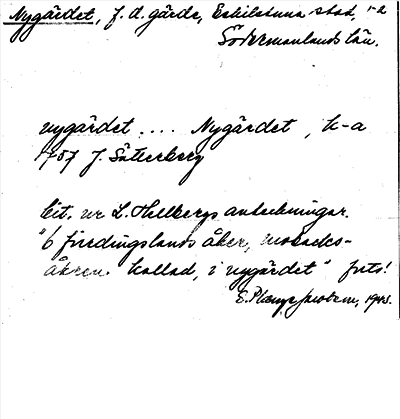 Nygärdet, f. d. gärde, Eskilstuna stad, 1-2
Södermanlands län.
nygärdet .... Nygärdet, k-a
1757 J. Säterberg
Cit. ur L. Hellbergs anteckningar.
"6 fjerdingslands åker,
åkren kallad, i nygärdet" forts!
E. 1943.